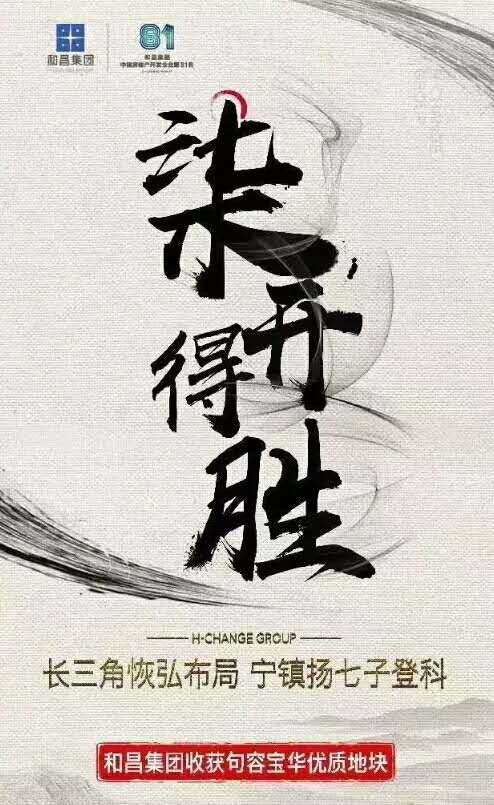 和昌集团
81
和昌集团
中国房地产开发企业第81名
柒开得胜
H-CHANGE GROUP
长三角恢弘布局 宁镇扬七子登科
和昌集团收获句容宝华优质地块